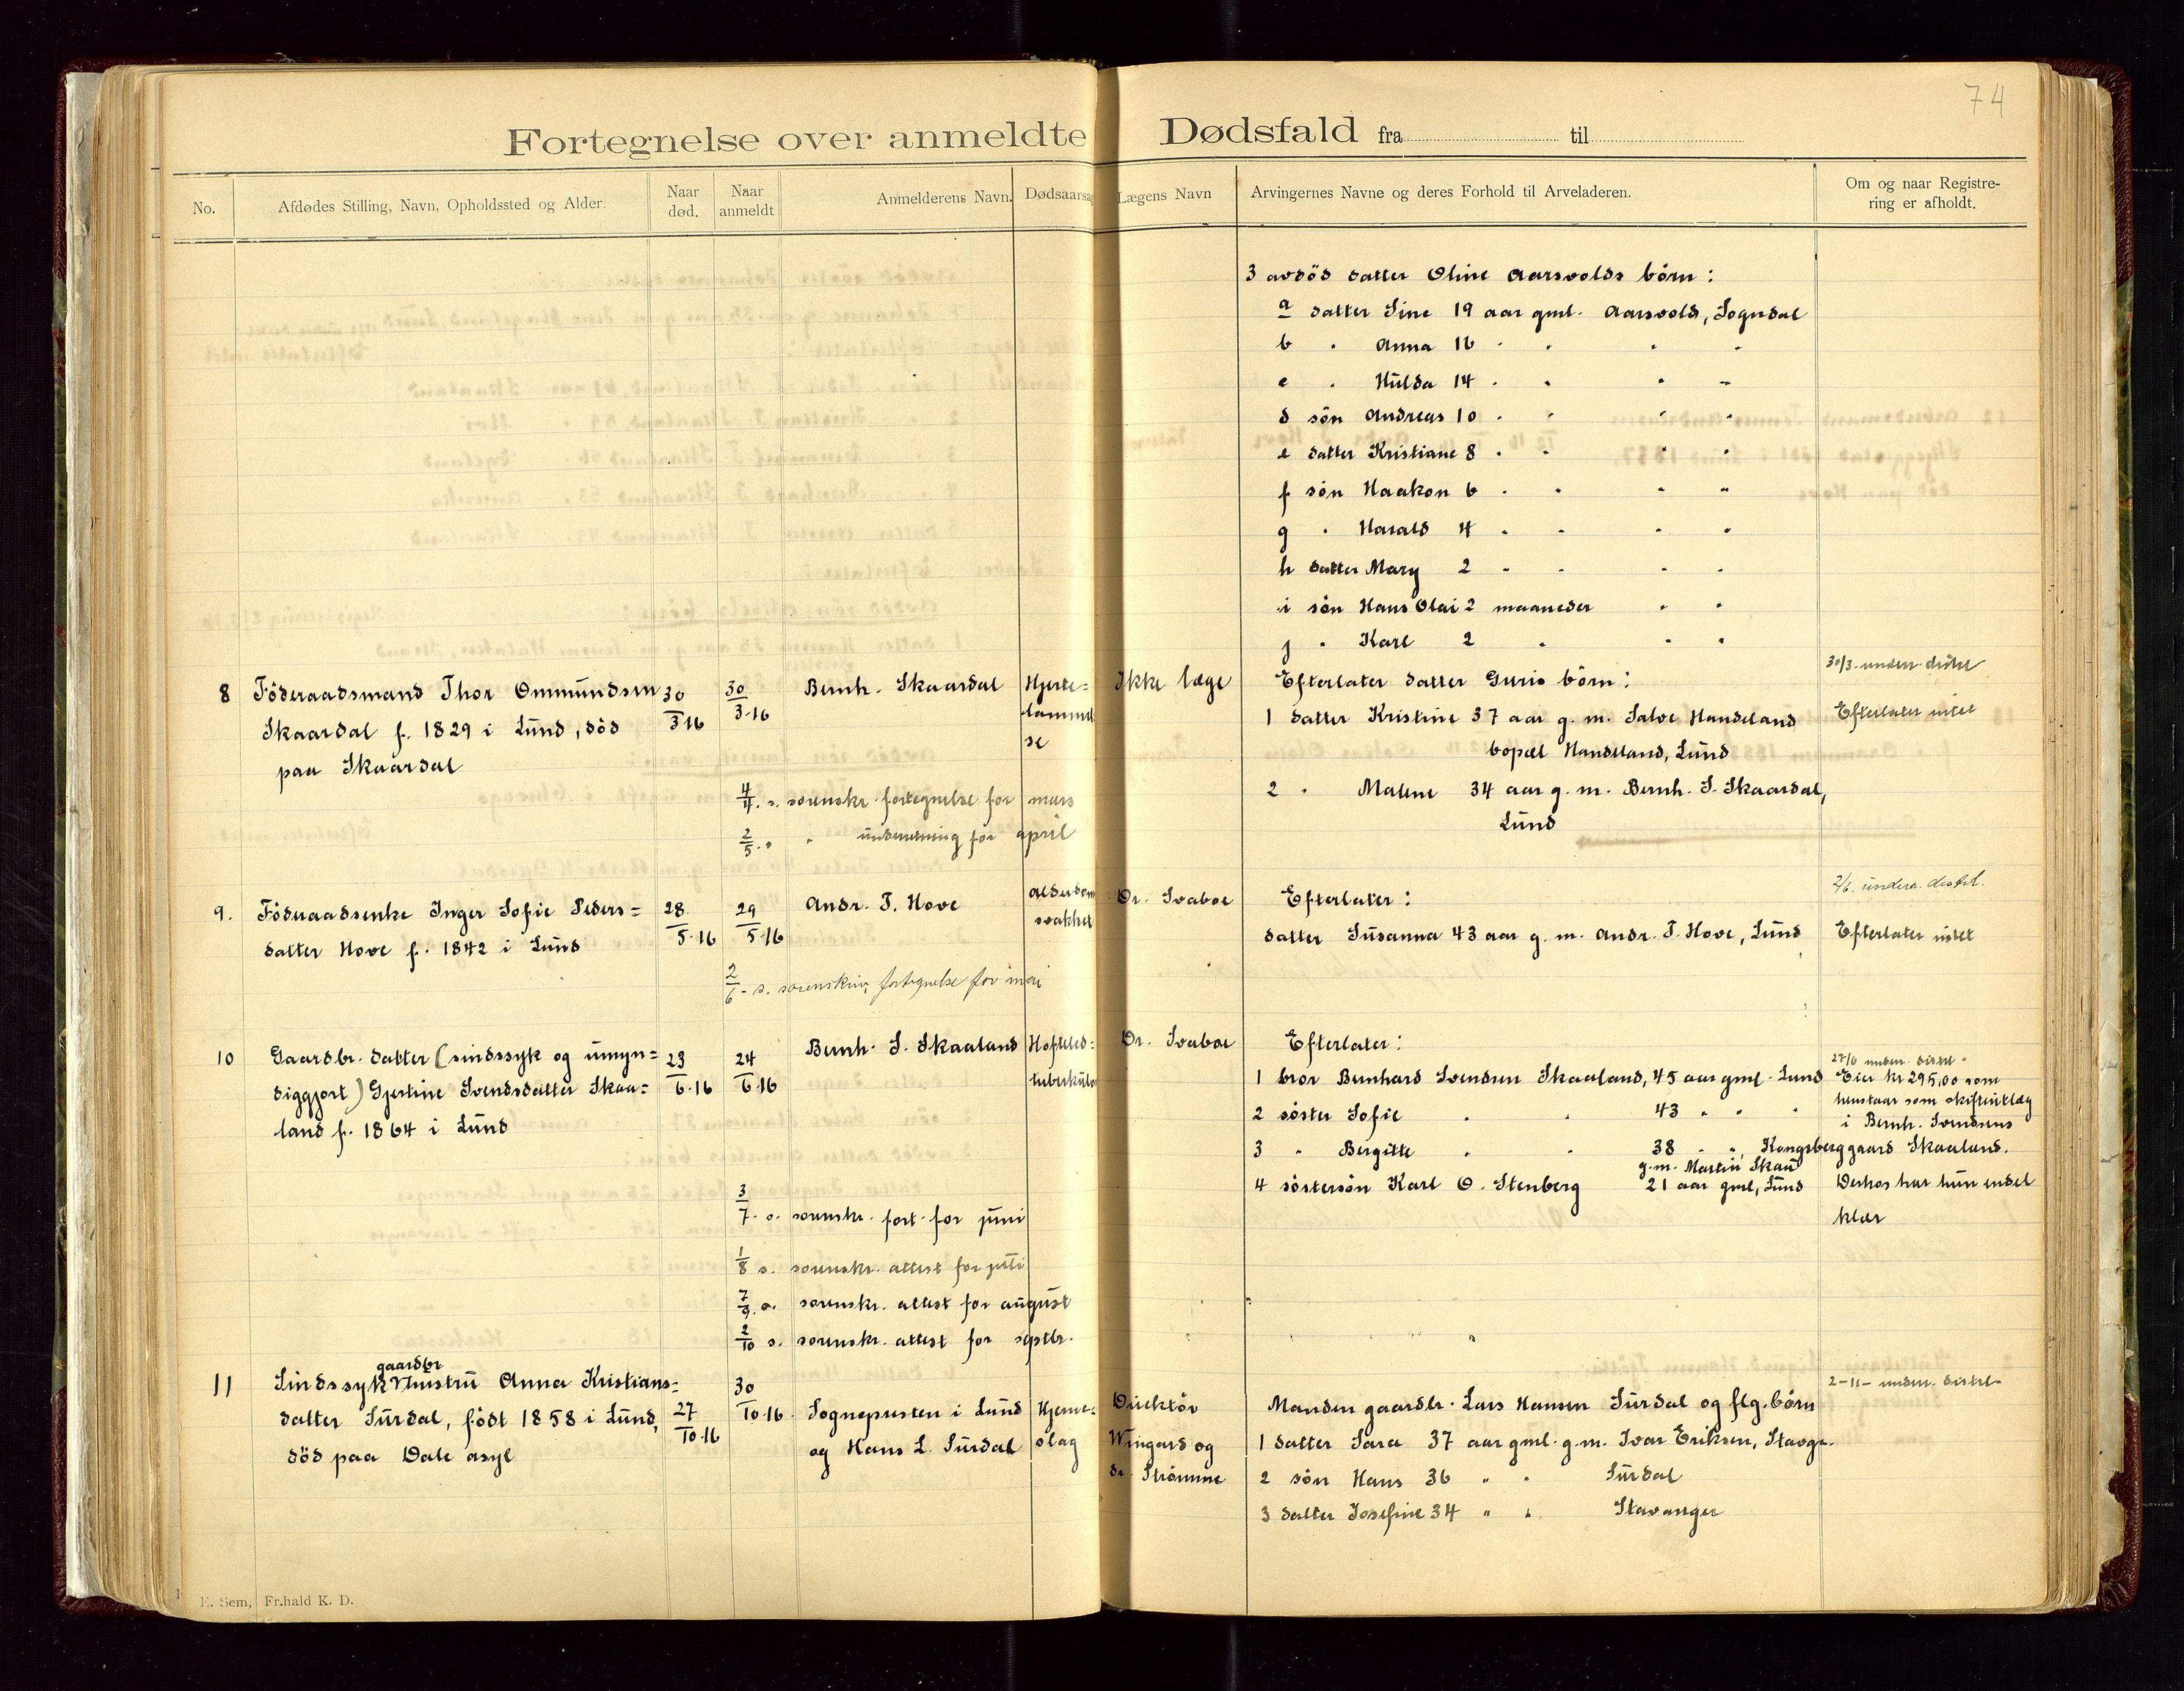 74
Fortegnelse over anmeldte Dødsfald fra til
No. Afdødes Stilling, Navn, Opholdssted og Alder. Naar død. Naar anmeldt Anmelderens Navn. Dødsaarsag Lægens Navn Arvingernes Navne og deres Forhold til Arveladeren. Om og naar Registrering er afholdt.
3 avdöd datter Oline Aarsvolds börn:
a datter Sine 19 aar gml. Aarsvold, Sogndal
b " Anna 16 " " " "
c " Hulda 14 " " " "
d sön Andreas 10 " " " "
e datter Kristiane 8 " " " "
f sön Haakon 6 " " " "
g " Harald 4 " " " "
h datter Mary 2 " " " "
i sön Hans Olai 2 maaneder " "
j " Karl 2 " " "
8 Föderaadsmand Thor Ommundsen
Skaardal f. 1829 i Lund, död
paa Skaardal
30/3 16
30/3 16
Bernh. Skaardal
Hjerte=
lammel
se
Ikke læge
Efterlater datter Guris börn:
1 datter Kristine 37 aar g. m. Salve Handeland
bopæl Handeland, Lund
2 " Malene 34 aar g. m. Bernh. S. Skaardal,
Lund
30/3 underr. distrl
Efterlater intet
4/4. s. sorenskr. fortegnelse for mars
2/5. " " underretning for april
9. Föderaadsenke Inger Sofie Peders=
datter Hove f. 1842 i Lund
28/5 16
29/5 16
Andr. T. Hove
Alderdom
svakhet
Dr. Svaboe
Efterlater:
datter Susanna 43 aar g. m. Andr. T. Hove, Lund
2/6. underr. distrl.
Efterlater intet
2/6 - s. sorenskriv. fortegnelse for mai
10 Gaardbr. datter (sindssyk og umyn=
diggjort) Gjertine Svendsdatter Skaa=
land f. 1864 i Lund
23/6 16
24/6 16
Bernh. S. Skaaland
Hofteled=
tuberkulo
Dr. Svaboe
Efterlater:
1 bror Bernhard Svendsen Skaaland, 45 aar gml. Lund
2 söster Sofie " " 43 " " "
3 " Bergitte " " 38 " ", Kongsberg
g. m. Martin Skau
4 söstersön Karl O. Stenberg 21 aar gml, Lund
27/6 underr. distrl -
Eier kr 295,00 som
henstaar som skifteutlæg
i Bernh. Svendsens
gaard Skaaland.
Derhos har hun endel
klær
3/7. s. sorenskr. fort. for juni
1/8 s. sorenskr. attest for juli
7/9. s. sorenskr. attest for august
2/10 s. sorenskr. attest for septbr.
11 Sindssyk gaardbr hustru Anna Kristians=
datter Surdal, födt 1858 i Lund,
död paa Dale asyl
27/10 16
30/10 16
Sognepresten i Lund
og Hans L. Surdal
Hjerne=
slag
Direktör
Wingard og
dr. Strömme
Manden gaardbr. Lars Hansen Surdal og flg. börn
1 datter Sara 37 aar gml. g. m. Ivar Eriksen, Stavgr.
2 sön Hans 36 " " Surdal
3 datter Josefine 34 " " Stavanger
2 - 11 - underr. distrl -
E. Sem, Fr.hald K. D.